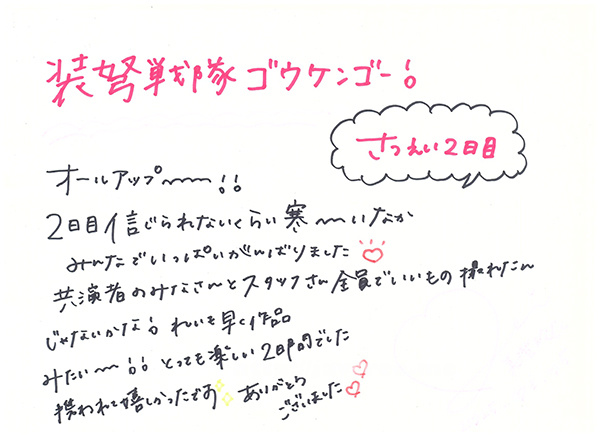 装弩戦隊ゴウケンゴー!
さつえい2日目
オールアップ〜〜〜!!
2日目信じられないくらい寒〜〜いなか
みんなでいっぱいがんばりました♡
共演者のみなさんとスタッフさん全員でいいもの撮れたん
じゃないかな! れいも早く作品
みたい〜〜!! とっても楽しい2日間でした
携われて嬉しかったです ありがとう
ございました♡♡